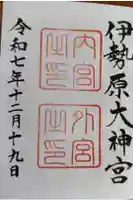 伊勢原大神宮
内宮之印
外宮之印
令和七年十二月十九日